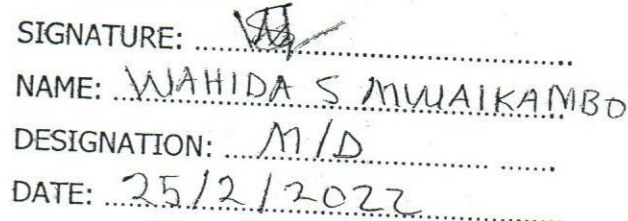 SIGNATURE: ..........
NAME: WAHIDA S MWAIKAMBO
DESIGNATION: M/D
DATE: 25/2/2022